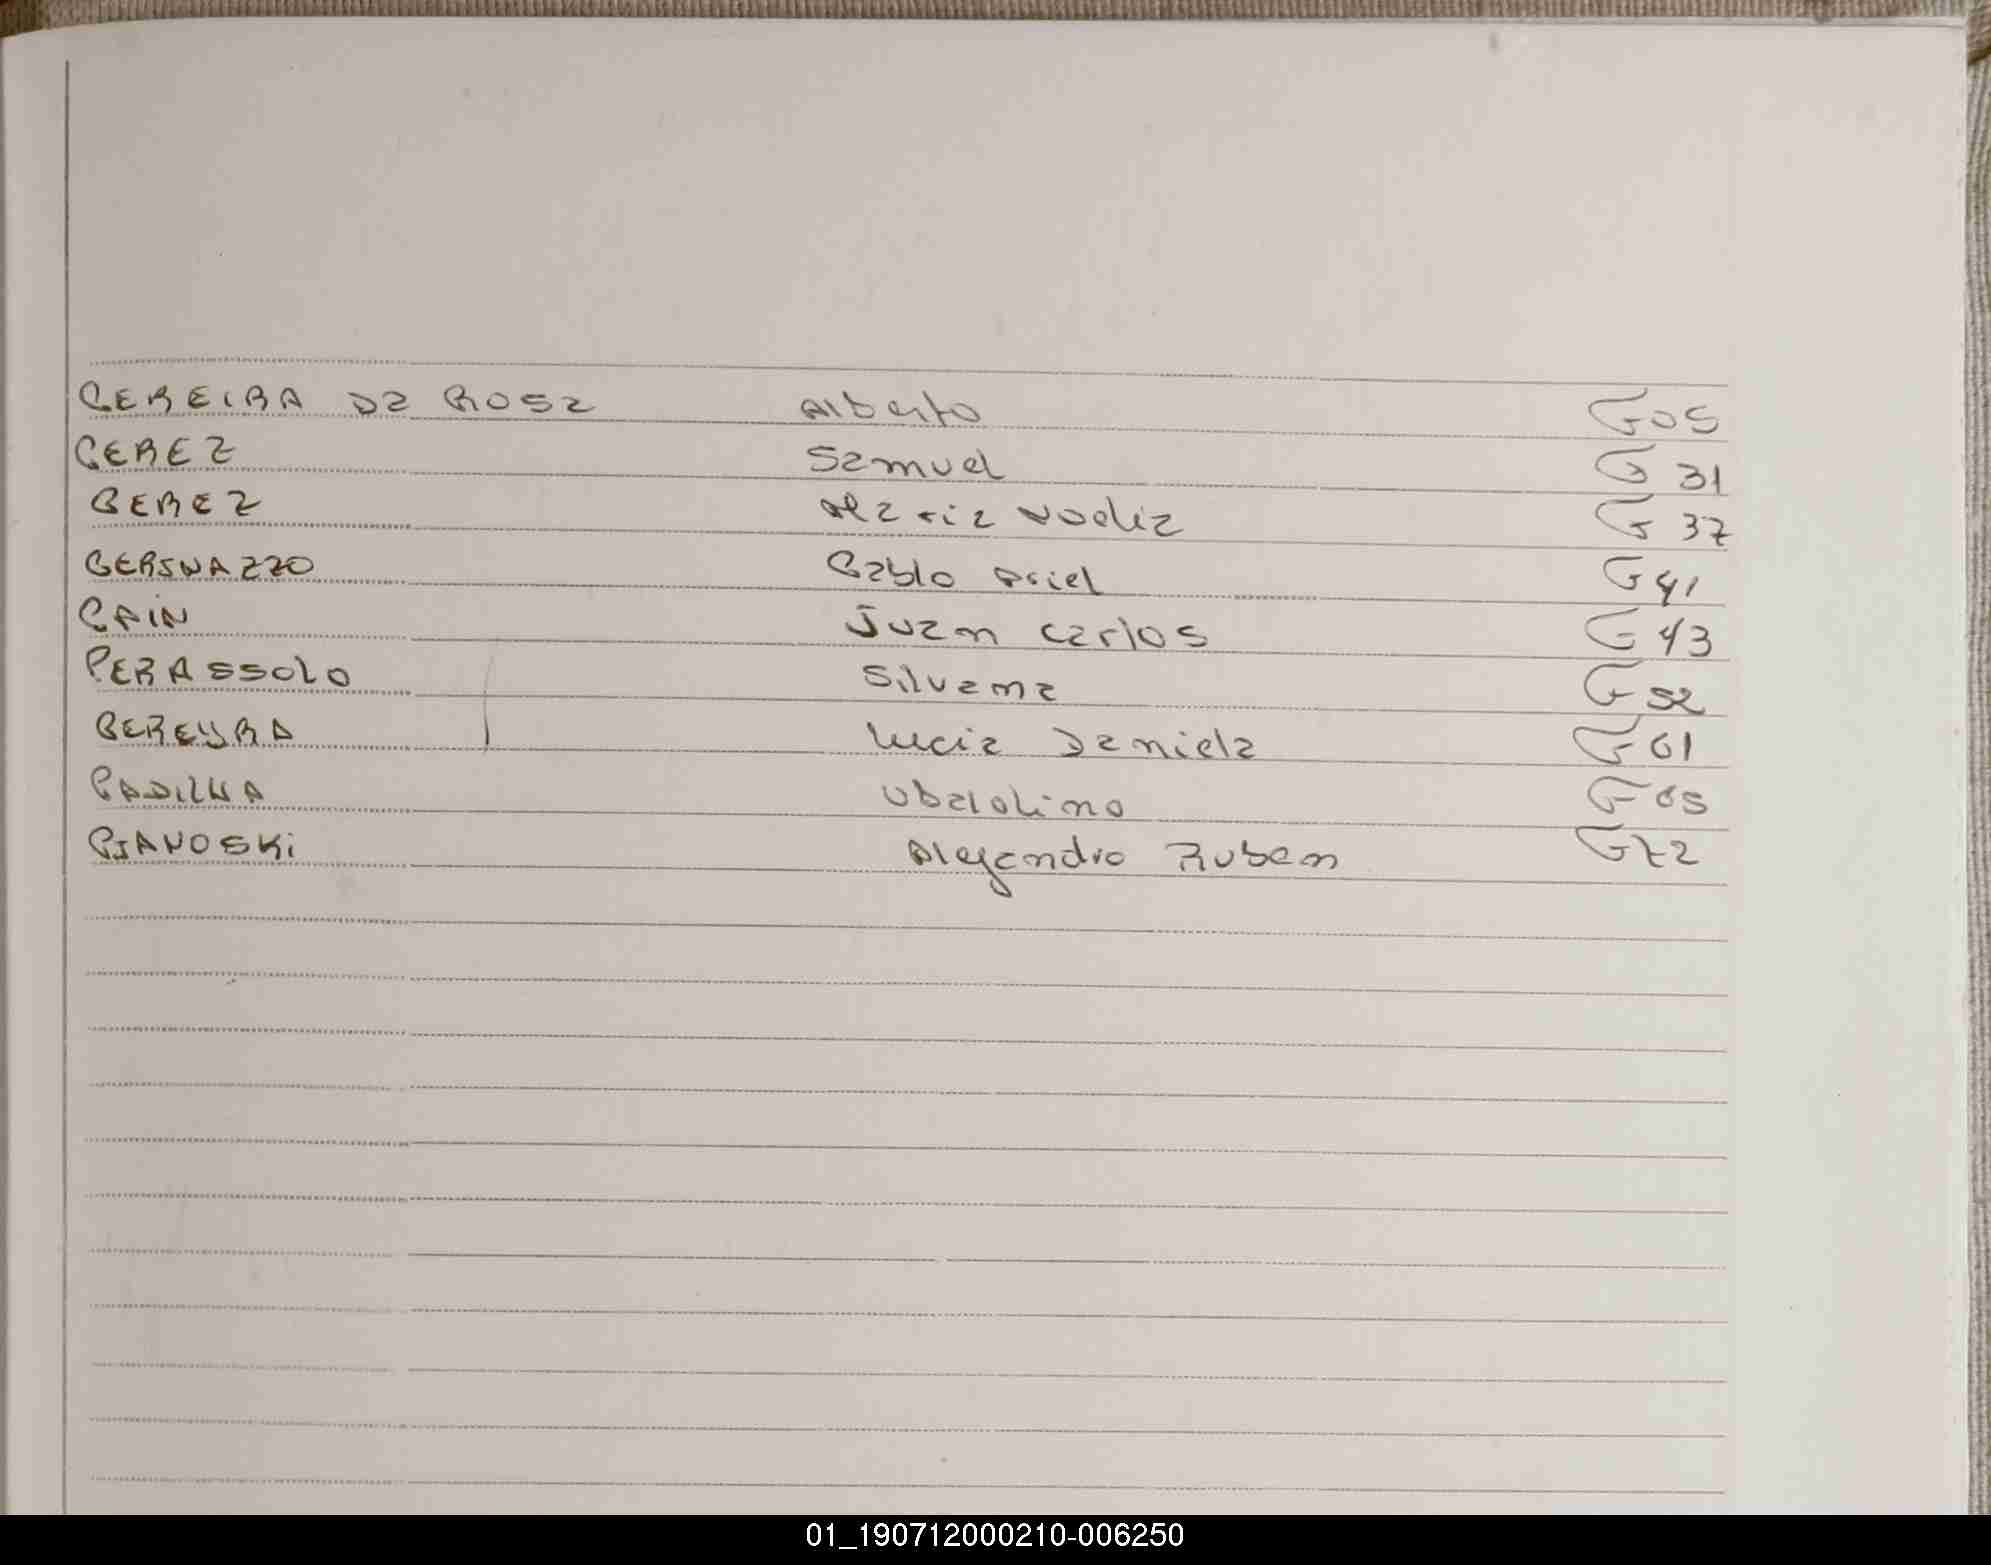 PEREIRA DA ROSA Alberto G05
PEREZ Samuel G 31
PEREZ Maria Noelia G 37
PERINAZZO Pablo Ariel G41
PAIN Juan Carlos G 43
PERASSOLO Silvana G 52
PEREYRA Lucia Daniela G 61
PADILHA Ubaldino G 65
PIANOSKi Alejandro Ruben G72
01_190712000210-006250